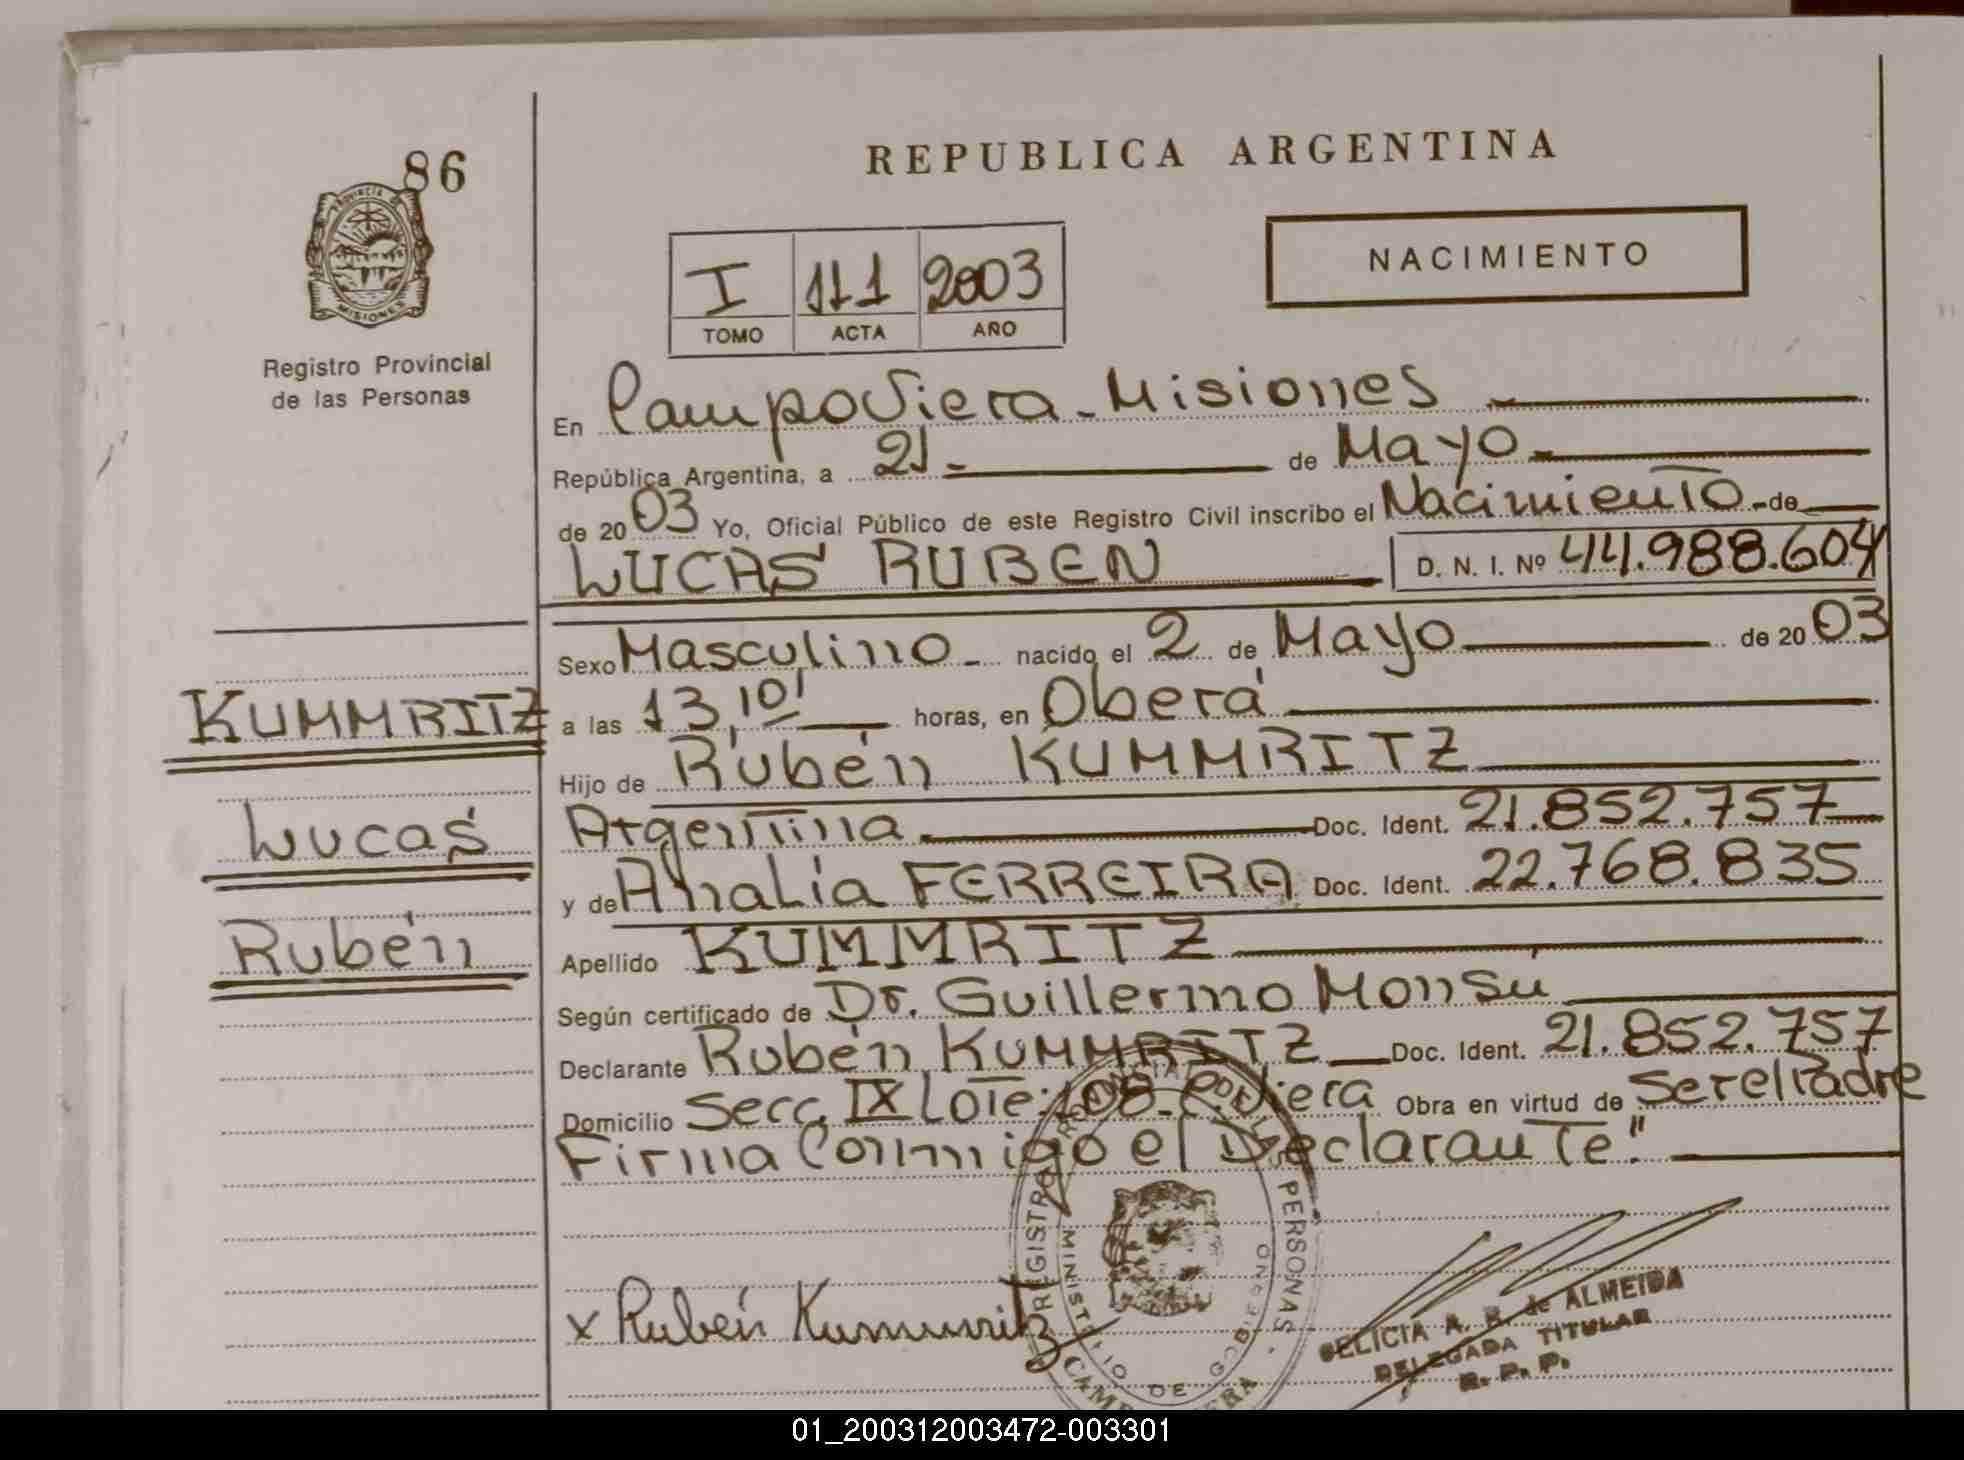 86
PROVINCIA DE
MISIONES
Registro Provincial
de las Personas
REPUBLICA ARGENTINA
I 111 2003
TOMO ACTA AÑO
NACIMIENTO
En Campo Viera - Misiones
República Argentina, a 21 - de Mayo
de 20 03 Yo, Oficial Público de este Registro Civil inscribo el Nacimiento - de
LUCAS RUBEN D. N. I. Nº 44.988.604
Sexo Masculino - nacido el 2 de Mayo de 20 03
KUMMRITZ
a las 13,10' horas, en Oberá
Hijo de Rubén KUMMRITZ
Lucas
Argentina Doc. Ident. 21.852.757
y de Analía FERREIRA Doc. Ident. 22.768.835
Rubén
Apellido KUMMRITZ
Según certificado de Dr. Guillermo Monsú
Declarante Rubén KUMMRITZ Doc. Ident. 21.852.757
Domicilio Secc. IX Lote: 108 - C. Viera Obra en virtud de ser el Padre
Firma Conmigo el Declarante"
REGISTRO PROVINCIAL DE LAS PERSONAS
MINISTERIO DE GOBIERNO
x Rubén Kummritz
A. B. de ALMEIDA
DELEGADA TITULAR
R. P. P.
01_200312003472-003301